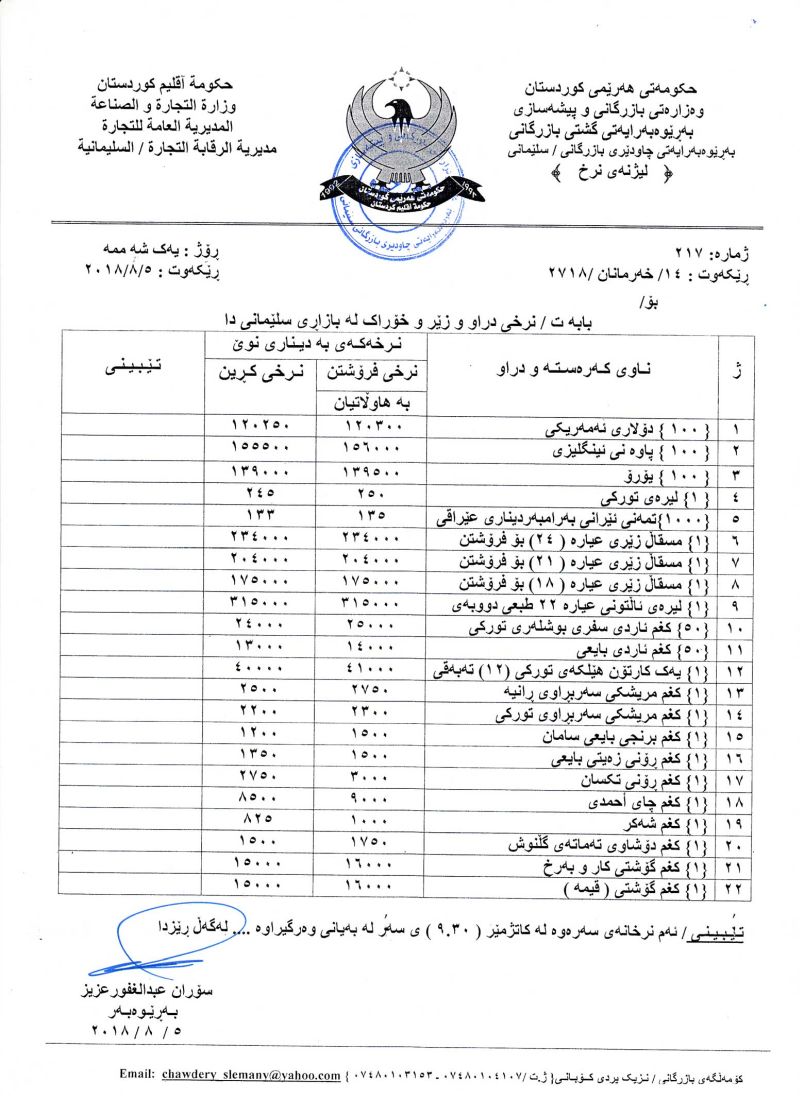 حکومەتی هەرێمی کوردستان
وەزارەتی بازرگانی و پیشەسازی
بەرێوەبەرایەتی گشتی بازرگانی
بەرێوەبەرایەتی چاودێری بازرگانی / سلێمانی
﴿ لیژنەی نرخ ﴾
حكومة أقليم كوردستان
وزارة التجارة و الصناعة
المديرية العامة للتجارة
مديرية الرقابة التجارة / السليمانية
١٩٩٢ 1992
حکومەتی هەرێمی کوردستان
حكومة أقليم كردستان
ژمارە: ٢١٧
ڕێکەوت : ١٤/ خەرمانان /٢٧١٨
ڕۆژ : یەک شە ممە
ڕێکەوت : ٢٠١٨/٨/٥
بۆ/
بابە ت / نرخی دراو و زێر و خۆراک لە بازاڕی سلێمانی دا
ژ ناوی کەرەستە و دراو نرخەکەی بە دیناری نوێ تێبینی
نرخی فرۆشتن بە هاوڵاتیان نرخی کڕین
١ {١٠٠} دۆلاری ئەمەریکی ١٢٠٣٠٠ ١٢٠٢٥٠
٢ {١٠٠} پاوە نی ئینگلیزی ١٥٦٠٠٠ ١٥٥٥٠٠
٣ {١٠٠} یۆرۆ ١٣٩٥٠٠ ١٣٩٠٠٠
٤ {١} لیرەی تورکی ٢٥٠ ٢٤٥
٥ {١٠٠٠}تمەنی ئێرانی بەرامبەردیناری عێراقی ١٣٥ ١٣٣
٦ {١} مسقاڵ زێری عیارە ( ٢٤) بۆ فرۆشتن ٢٣٤٠٠٠ ٢٣٤٠٠٠
٧ {١} مسقاڵ زێری عیارە ( ٢١) بۆ فرۆشتن ٢٠٤٠٠٠ ٢٠٤٠٠٠
٨ {١} مسقاڵ زێری عیارە ( ١٨) بۆ فرۆشتن ١٧٥٠٠٠ ١٧٥٠٠٠
٩ {١} لیرەی ئاڵتونی عیارە ٢٢ طبعی دووبەی ٣١٥٠٠٠ ٣١٥٠٠٠
١٠ {٥٠} کغم ئاردی سفری بوشلەری تورکی ٢٥٠٠٠ ٢٤٠٠٠
١١ {٥٠} کغم ئاردی بایعی ١٤٠٠٠ ١٣٠٠٠
١٢ {١} یەک کارتۆن هێلکەی تورکی (١٢) تەبەقی ٤١٠٠٠ ٤٠٠٠٠
١٣ {١} کغم مریشکی سەربڕاوی ڕانیە ٢٧٥٠ ٢٥٠٠
١٤ {١} کغم مریشکی سەربڕاوی تورکی ٢٣٠٠ ٢٢٠٠
١٥ {١} کغم برنجی بایعی سامان ١٥٠٠ ١٢٠٠
١٦ {١} کغم ڕۆنی زەیتی بایعی ١٥٠٠ ١٣٥٠
١٧ {١} کغم ڕۆنی تکسان ٣٠٠٠ ٢٧٥٠
١٨ {١} کغم چای أحمدی ٩٠٠٠ ٨٥٠٠
١٩ {١} کغم شەکر ١٠٠٠ ٨٢٥
٢٠ {١} کغم دۆشاوی تەماتەی گڵنوش ١٧٥٠ ١٥٠٠
٢١ {١} کغم گۆشتی کار و بەرخ ١٦٠٠٠ ١٥٠٠٠
٢٢ {١} کغم گۆشتی ( قیمە ) ١٦٠٠٠ ١٥٠٠٠
تێبینی/ ئەم نرخانەی سەرەوە لە کاتژمێر ( ٩.٣٠ ) ی سەر لە بەیانی وەرگیراوە .... لەگەڵ ڕێزدا
سۆران عبدالغفورعزیز
بەڕێوەبەر
٢٠١٨ / ٨ / ٥
کۆمەڵگەی بازرگانی / نزیک پردی کۆبانی{ ژ.ت /٠٧٤٨٠١٠٤١٠٧ ـ ٠٧٤٨٠١٠٣١٥٣ } Email: chawdery_slemany@yahoo.com